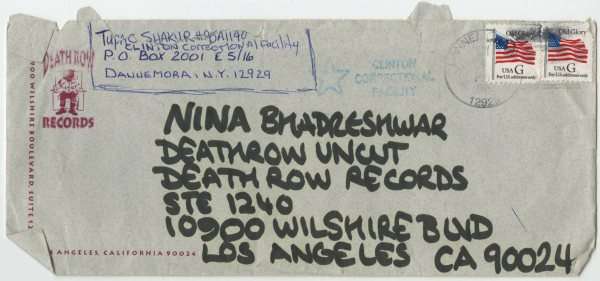 Tupac Shakur #95A1140
Clinton Correctional Facility
P.O. Box 2001 E5/16
Dannemora, N.Y. 12929
DEATH ROW
RECORDS
900 WILSHIRE BOULEVARD, SUITE 12
ANGELES, CALIFORNIA 90024
CLINTON
CORRECTIONAL
FACILITY
Old Glory
USA G
For U.S. addresses only
Old Glory
USA G
For U.S. addresses only
1292
NINA BHADRESHWAR
DEATHROW UNCUT
DEATH ROW RECORDS
STE 1240
10900 WILSHIRE BLVD
LOS ANGELES CA 90024